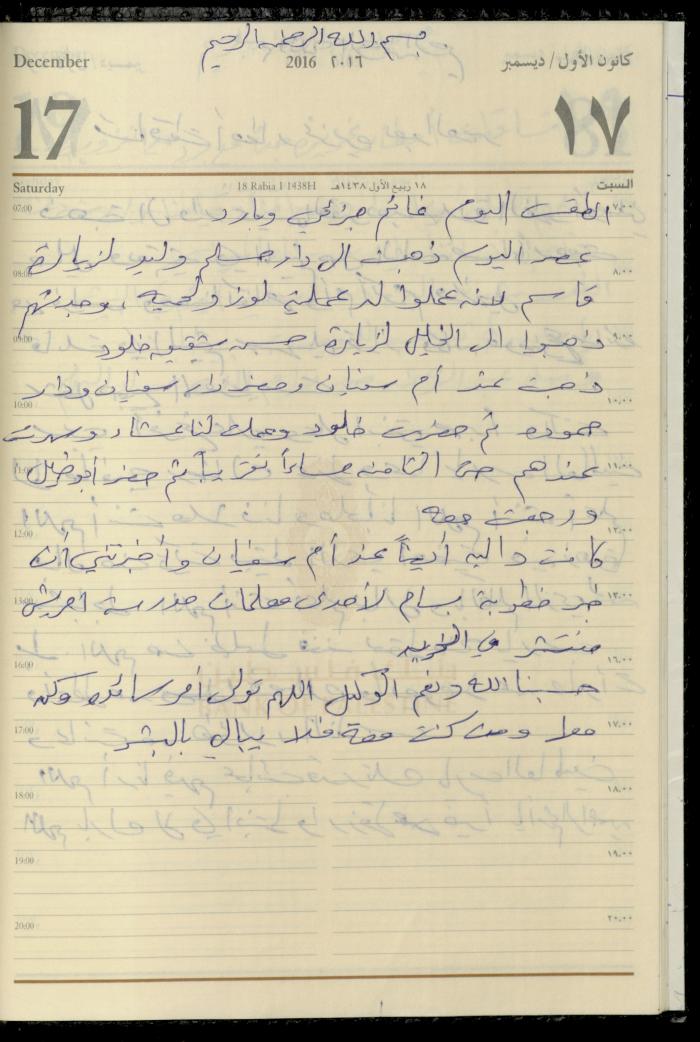 بسم الله الرحمن الرحيم
December 2016 ٢٠١٦ كانون الأول / ديسمبر
17 ١٧
Saturday 18 Rabia I 1438H ١٨ ربيع الأول ١٤٣٨هـ السبت
07:00 الطقس اليوم غائم جزئي وبارد ٧,٠٠
عصر اليوم ذهبت الى دار مسلم وليد لزيارة
08:00 ٨,٠٠
قاسم لانه عملوا له عملية لوز ولحمية ، وجدتهم
09:00 ذهبوا الى الخليل لزيارة حسن شقيق خلود ٩,٠٠
ذهبت عند أم سفيان وحضر دار سفيان ودار
10:00 ١٠,٠٠
حموده ثم حضرت خلود وعملت لنا عشاء وسهرت
11:00 عندهم حتى الثامنه مساءاً تقريباً ثم حضر أبو خليل ١١,٠٠
ورجعت معه
12:00 ١٢,٠٠
كانت داليه أيضاً عند أم سفيان وأخبرتني أن
13:00 خبر خطوبة بسام لأحدى معلمات مدرسة ١٣,٠٠
منتشر في
16:00 ١٦,٠٠
حسبنا الله ونعم الوكيل اللهم تولى أمر سائده وكن
17:00 معها ومن كنت معه فلا يبالي بالبشر ١٧,٠٠
18:00 ١٨,٠٠
19:00 ١٩,٠٠
20:00 ٢٠,٠٠